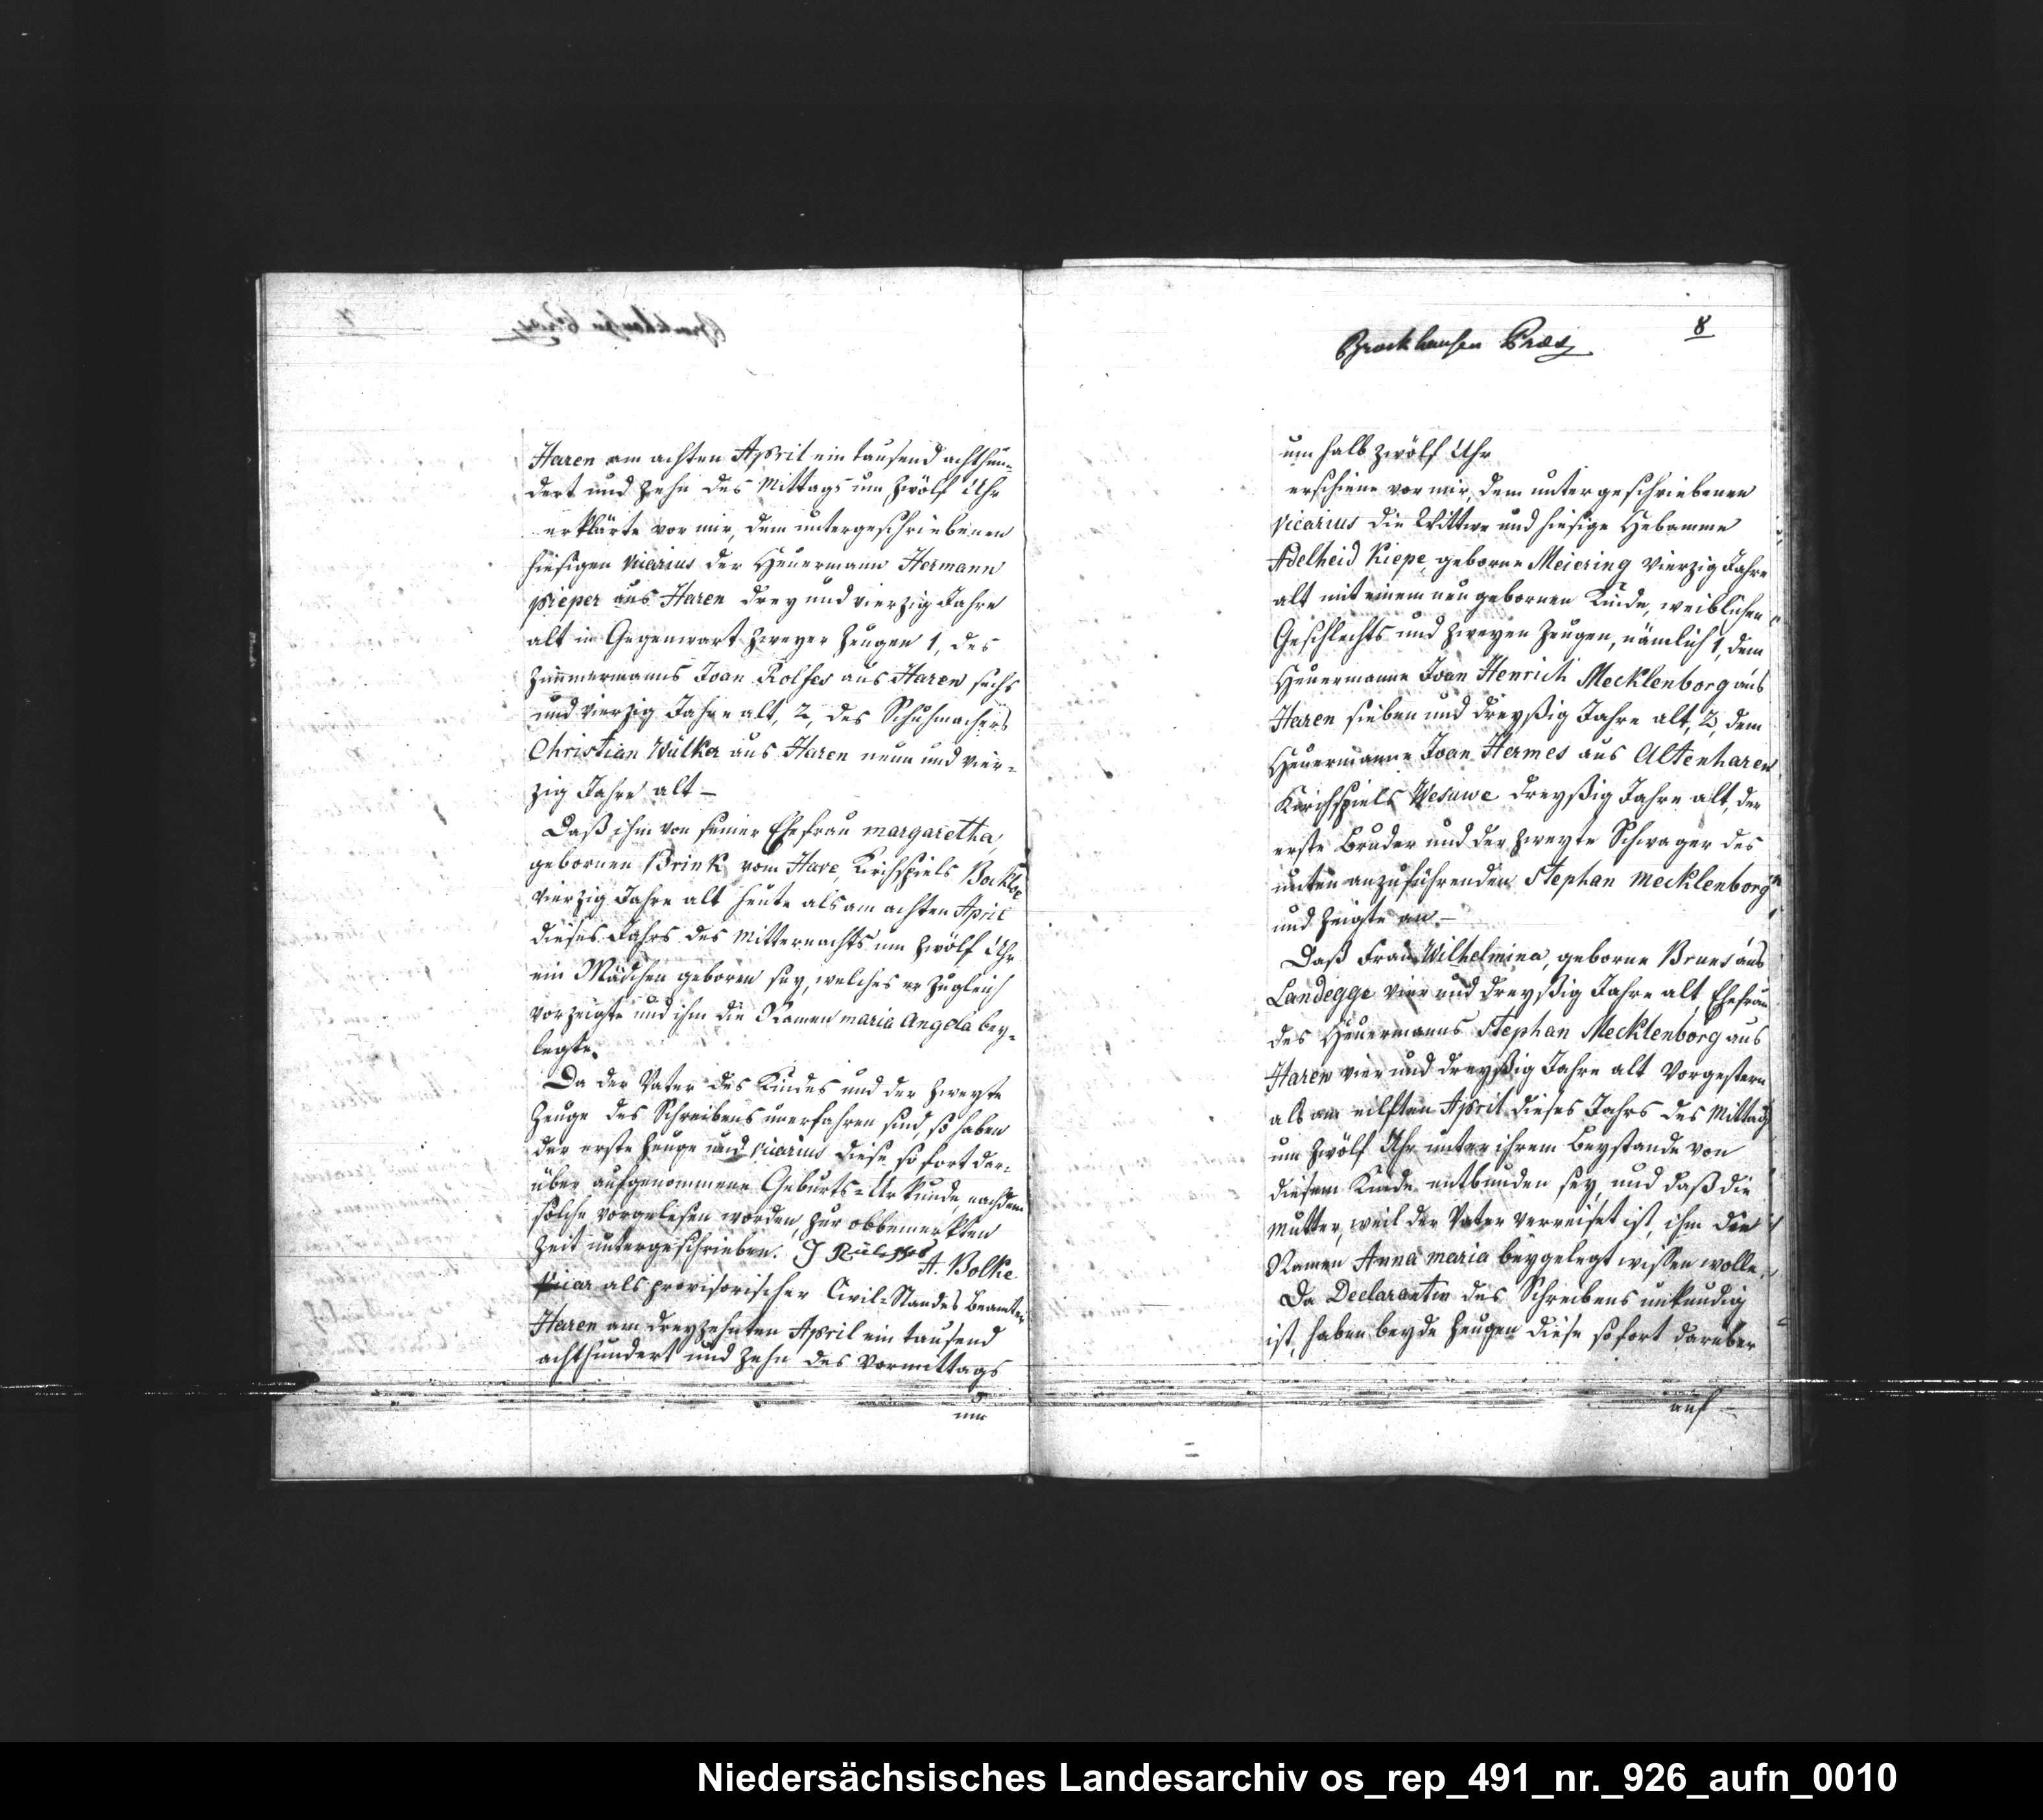 Haren am achten April ein tausend achthun-
dert und zehn des Mittags um zwölf Uhr
erklärte vor mir, dem untergeschriebenen
hiesigen vicarius der Heuermann Hermann
Pieper aus Haren drey und vierzig Jahre
alt in Gegenwart zweyer Zeugen 1, des
Zimmermanns Joan Rolfes aus Haren sechs
und vierzig Jahre alt, 2, des Schuhmachers
Christian Wülker aus Haren neun und vier-
zig Jahre alt –
Daß ihm von seiner Ehefrau Margaretha,
gebornen Brink vom Have, Kirchspiels Bokeloe
vierzig Jahre alt heute als am achten April
dieses Jahrs des Mitternachts um zwölf Uhr
ein Mädchen geboren sey, welches er zugleich
vorzeigte und ihm die Namen Maria Angela bey-
legte.
Da der Vater des Kindes und der zweyte
Zeuge des Schreibens unerfahren sind, so haben
der erste Zeuge und vicarius diese so fort dar-
über aufgenommene Geburts-Urkunde, nachdem
solche vorgelesen worden, zur obbemerkten
Zeit untergeschrieben. J
A. Bolke
vicar als provisorischer Civil-Standes Beamter
Haren am dreyzehnten April ein tausend
achthundert und zehn des Vormittags
um
Brockhausen Præs
8
um halb zwölf Uhr
erschiene vor mir, dem untergeschriebenen
vicarius die Wittwe und hiesige Hebamme
Adelheid Kiepe, geborne Meiering vierzig Jahre
alt mit einem neu gebornen Kinde, weiblichen
Geschlechts und zweyen Zeugen, nämlich 1, dem
Heuermanne Joan Henrich Mecklenborg aus
Haren sieben und dreyßig Jahre alt, 2, dem
Heuermanne Joan Hermes aus Altenharen
Kirchspiels Wesuwe dreyßig Jahre alt, der
erste Bruder und der zweyte Schwager des
unten anzuführenden Stephan Mecklenborg
und zeigte an –
Daß Frau Wilhelmina, geborne Brues aus
Landegge vier und dreyßig Jahre alt, Ehefrau
des Heuermanns Stephan Mecklenborg aus
Haren vier und dreyßig Jahre alt vorgestern
als am eilften April dieses Jahrs des Mittags
um zwölf Uhr unter ihrem Beystande von
diesem Kinde entbunden sey, und daß die
Mutter, weil der Vater verreiset ist, ihm die
Namen Anna Maria beygelegt wissen wolle.
Da Declarantin des Schreibens unkundig
ist, haben beyde Zeugen diese sofort darüber
auf
Niedersächsisches Landesarchiv os_rep_491_nr._926_aufn_0010